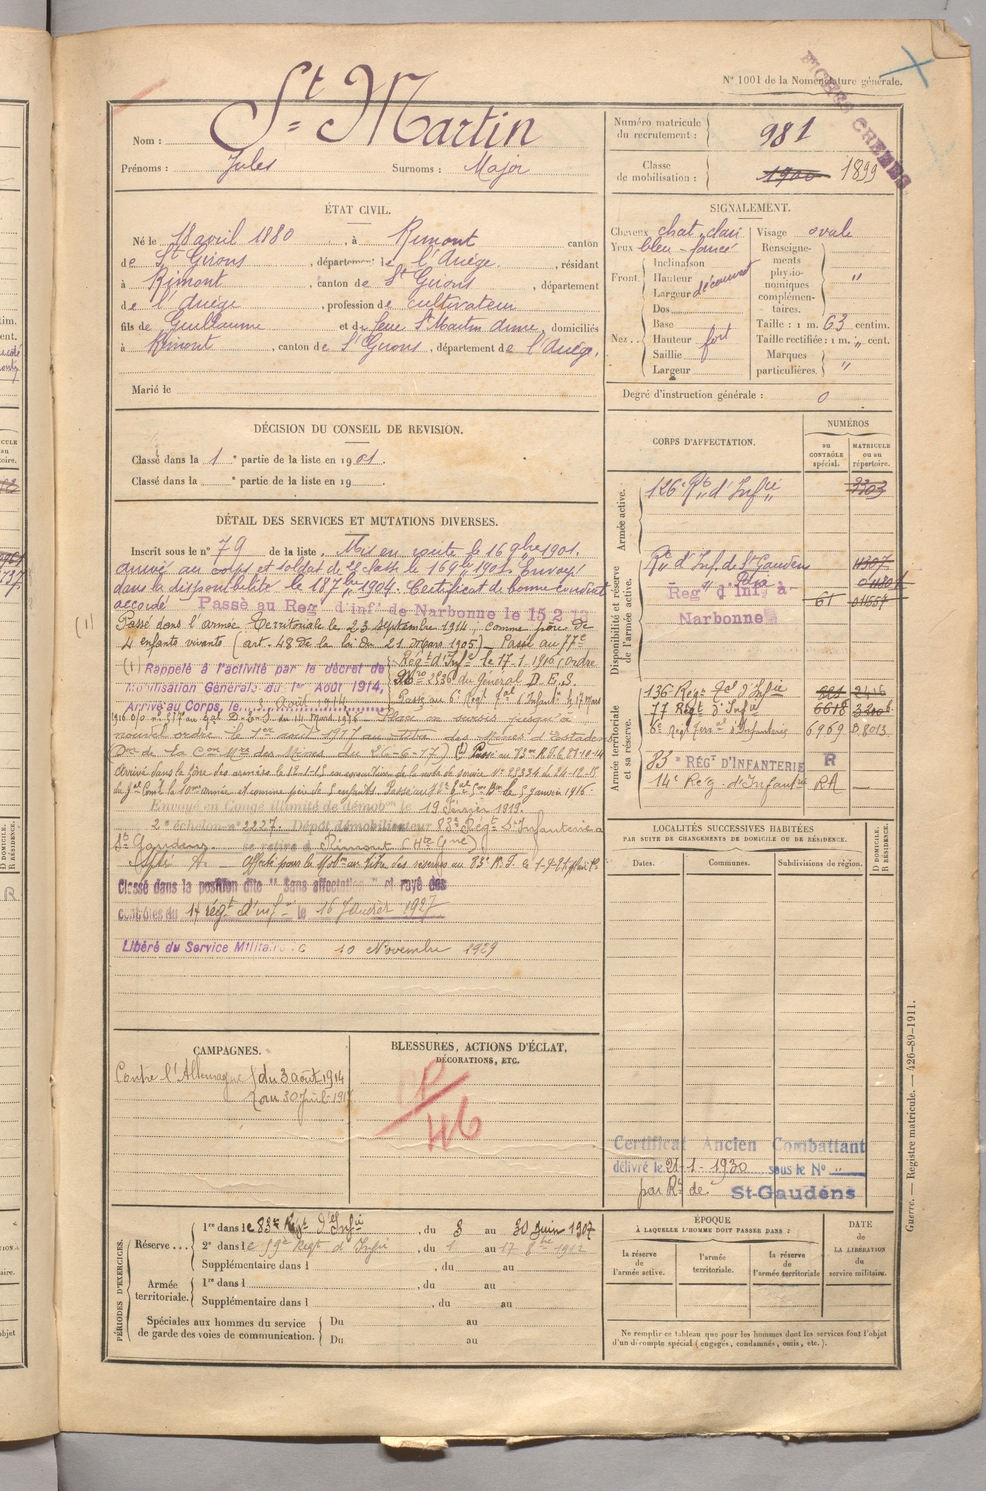 N° 1001 de la Nomenclature générale.
FICHES CREEES
Nom : St Martin
Prénoms : Jules Surnoms : Major
Numéro matricule du recrutement : 981
Classe de mobilisation : 1900 1899
ÉTAT CIVIL.
Né le 18 avril 1880, à Rimont canton
de St Girons, département de l'Ariège, résidant
à Rimont, canton de St Girons, département
de l'Ariège, profession de cultivateur
fils de Guillaume et de feue St Martin Anne, domiciliés
à Rimont, canton de St Girons, département de l'Ariège.
Marié le
SIGNALEMENT.
Cheveux chat. clair Visage ovale
Yeux bleu-foncé
Front Inclinaison
Hauteur
Largeur découvert
Nez Dos
Base
Hauteur fort
Saillie
Largeur
Renseignements physionomiques complémentaires. "
Taille : 1 m. 63 centim.
Taille rectifiée : 1 m. " cent.
Marques particulières. "
Degré d'instruction générale : 0
DÉCISION DU CONSEIL DE REVISION.
Classé dans la 1e partie de la liste en 1901.
Classé dans la e partie de la liste en 19
CORPS D'AFFECTATION.
NUMÉROS
au CONTRÔLE spécial.
MATRICULE ou au répertoire.
Armée active.
126e Rt d'Infie 3303
Disponibilité et réserve de l'armée active.
Rt d'Inf. de St Gaudens
Regt d'Infie à Narbonne 61
Armée territoriale et sa réserve.
136e Regt Tal d'Infie 2416
77 Regt d'Infie 6618
6e Regt d'Infanterie 6969
83e RÉGt D'INFANTERIE R
14e Rég. d'Infanterie RA
DÉTAIL DES SERVICES ET MUTATIONS DIVERSES.
Inscrit sous le n° 79 de la liste. Mis en route le 16 9bre 1901.
arrivé au corps et soldat de 2e classe le 16 9bre 1901. Envoyé
dans la disponibilité le 18 7bre 1904. Certificat de bonne conduite
accordé. Passé au Regt d'Infie de Narbonne le 15.2.12
(1)
Passé dans l'armée Territoriale le 23 septembre 1914, comme père de
4 enfants vivants (art. 48 de la loi du 21 Mars 1905) Passé au 77e
Régt d'Infie le 17.1.1916 (ordre
du Général D.E.S.
(1) Rappelé à l'activité par le décret de
Mobilisation Générale du 1er Août 1914,
Arrivé au Corps, le 3 Août 1914
Place en sursis jusqu'à
nouvel ordre le 1er août 1917 au titre des Mines
Arrivé dans la zône des armées le
Envoyé en Congé illimité de démobon le 19 Février 1919.
2e échelon n° 2227. Dépôt démobilisateur 83e Régt d'Infanterie à
St Gaudens. se retire à Rimont (Hte Gne)
Classé dans la position dite "Sans affectation" et rayé des
contrôles du 14 régt d'inf le 16 Janvier 1927
Libéré du Service Militaire le 10 Novembre 1929
LOCALITÉS SUCCESSIVES HABITÉES
PAR SUITE DE CHANGEMENTS DE DOMICILE OU DE RÉSIDENCE.
Dates.
Communes.
Subdivisions de région.
D DOMICILE. R RÉSIDENCE.
CAMPAGNES.
Contre l'Allemagne du 3 août 1914
au 30 Juil. 1917
BLESSURES, ACTIONS D'ÉCLAT,
DÉCORATIONS, ETC.
46
Certificat Ancien Combattant
délivré le 21-1-1930 sous le N° "
par Rt de St-Gaudens
PÉRIODES D'EXERCICES.
Réserve 1re dans le 83e Régt d'Infie, du 3 au 30 Juin 1907
2e dans le Régt d'Infie, du 1 au 17
Supplémentaire dans l , du au
Armée territoriale. 1re dans l , du au
Supplémentaire dans l , du au
Spéciales aux hommes du service de garde des voies de communication. Du au
Du au
ÉPOQUE
À LAQUELLE L'HOMME DOIT PASSER DANS :
la réserve de l'armée active.
l'armée territoriale.
la réserve de l'armée territoriale
DATE DE LA LIBÉRATION du service militaire.
Ne remplir ce tableau que pour les hommes dont les services font l'objet
d'un décompte spécial (engagés, condamnés, omis, etc.).
Guerre. — Registre matricule. — 426-89-1911.